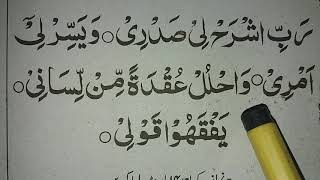 رَبِّ اشْرَحْ لِیْ صَدْرِیْ ○ وَیَسِّرْ لِیْۤ
اَمْرِیْ ○ وَاحْلُلْ عُقْدَةً مِّنْ لِّسَانِیْ ○
یَفْقَهُوْا قَوْلِیْ ○